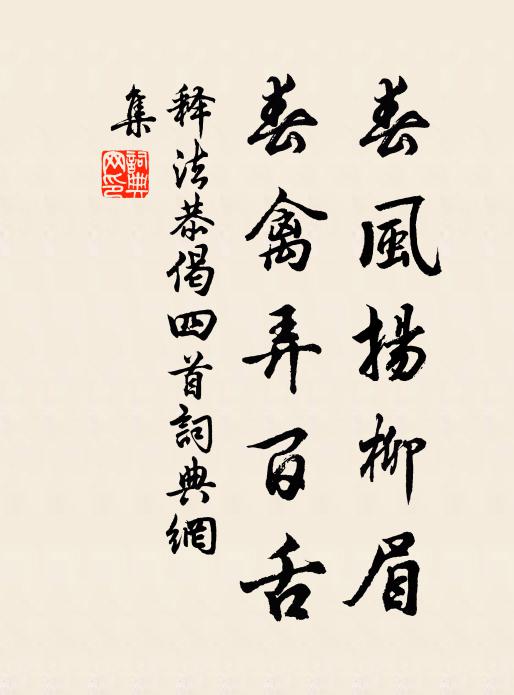 春風揚柳眉
春禽弄百舌
释法恭偈四首詞典網
集
詞典
网印